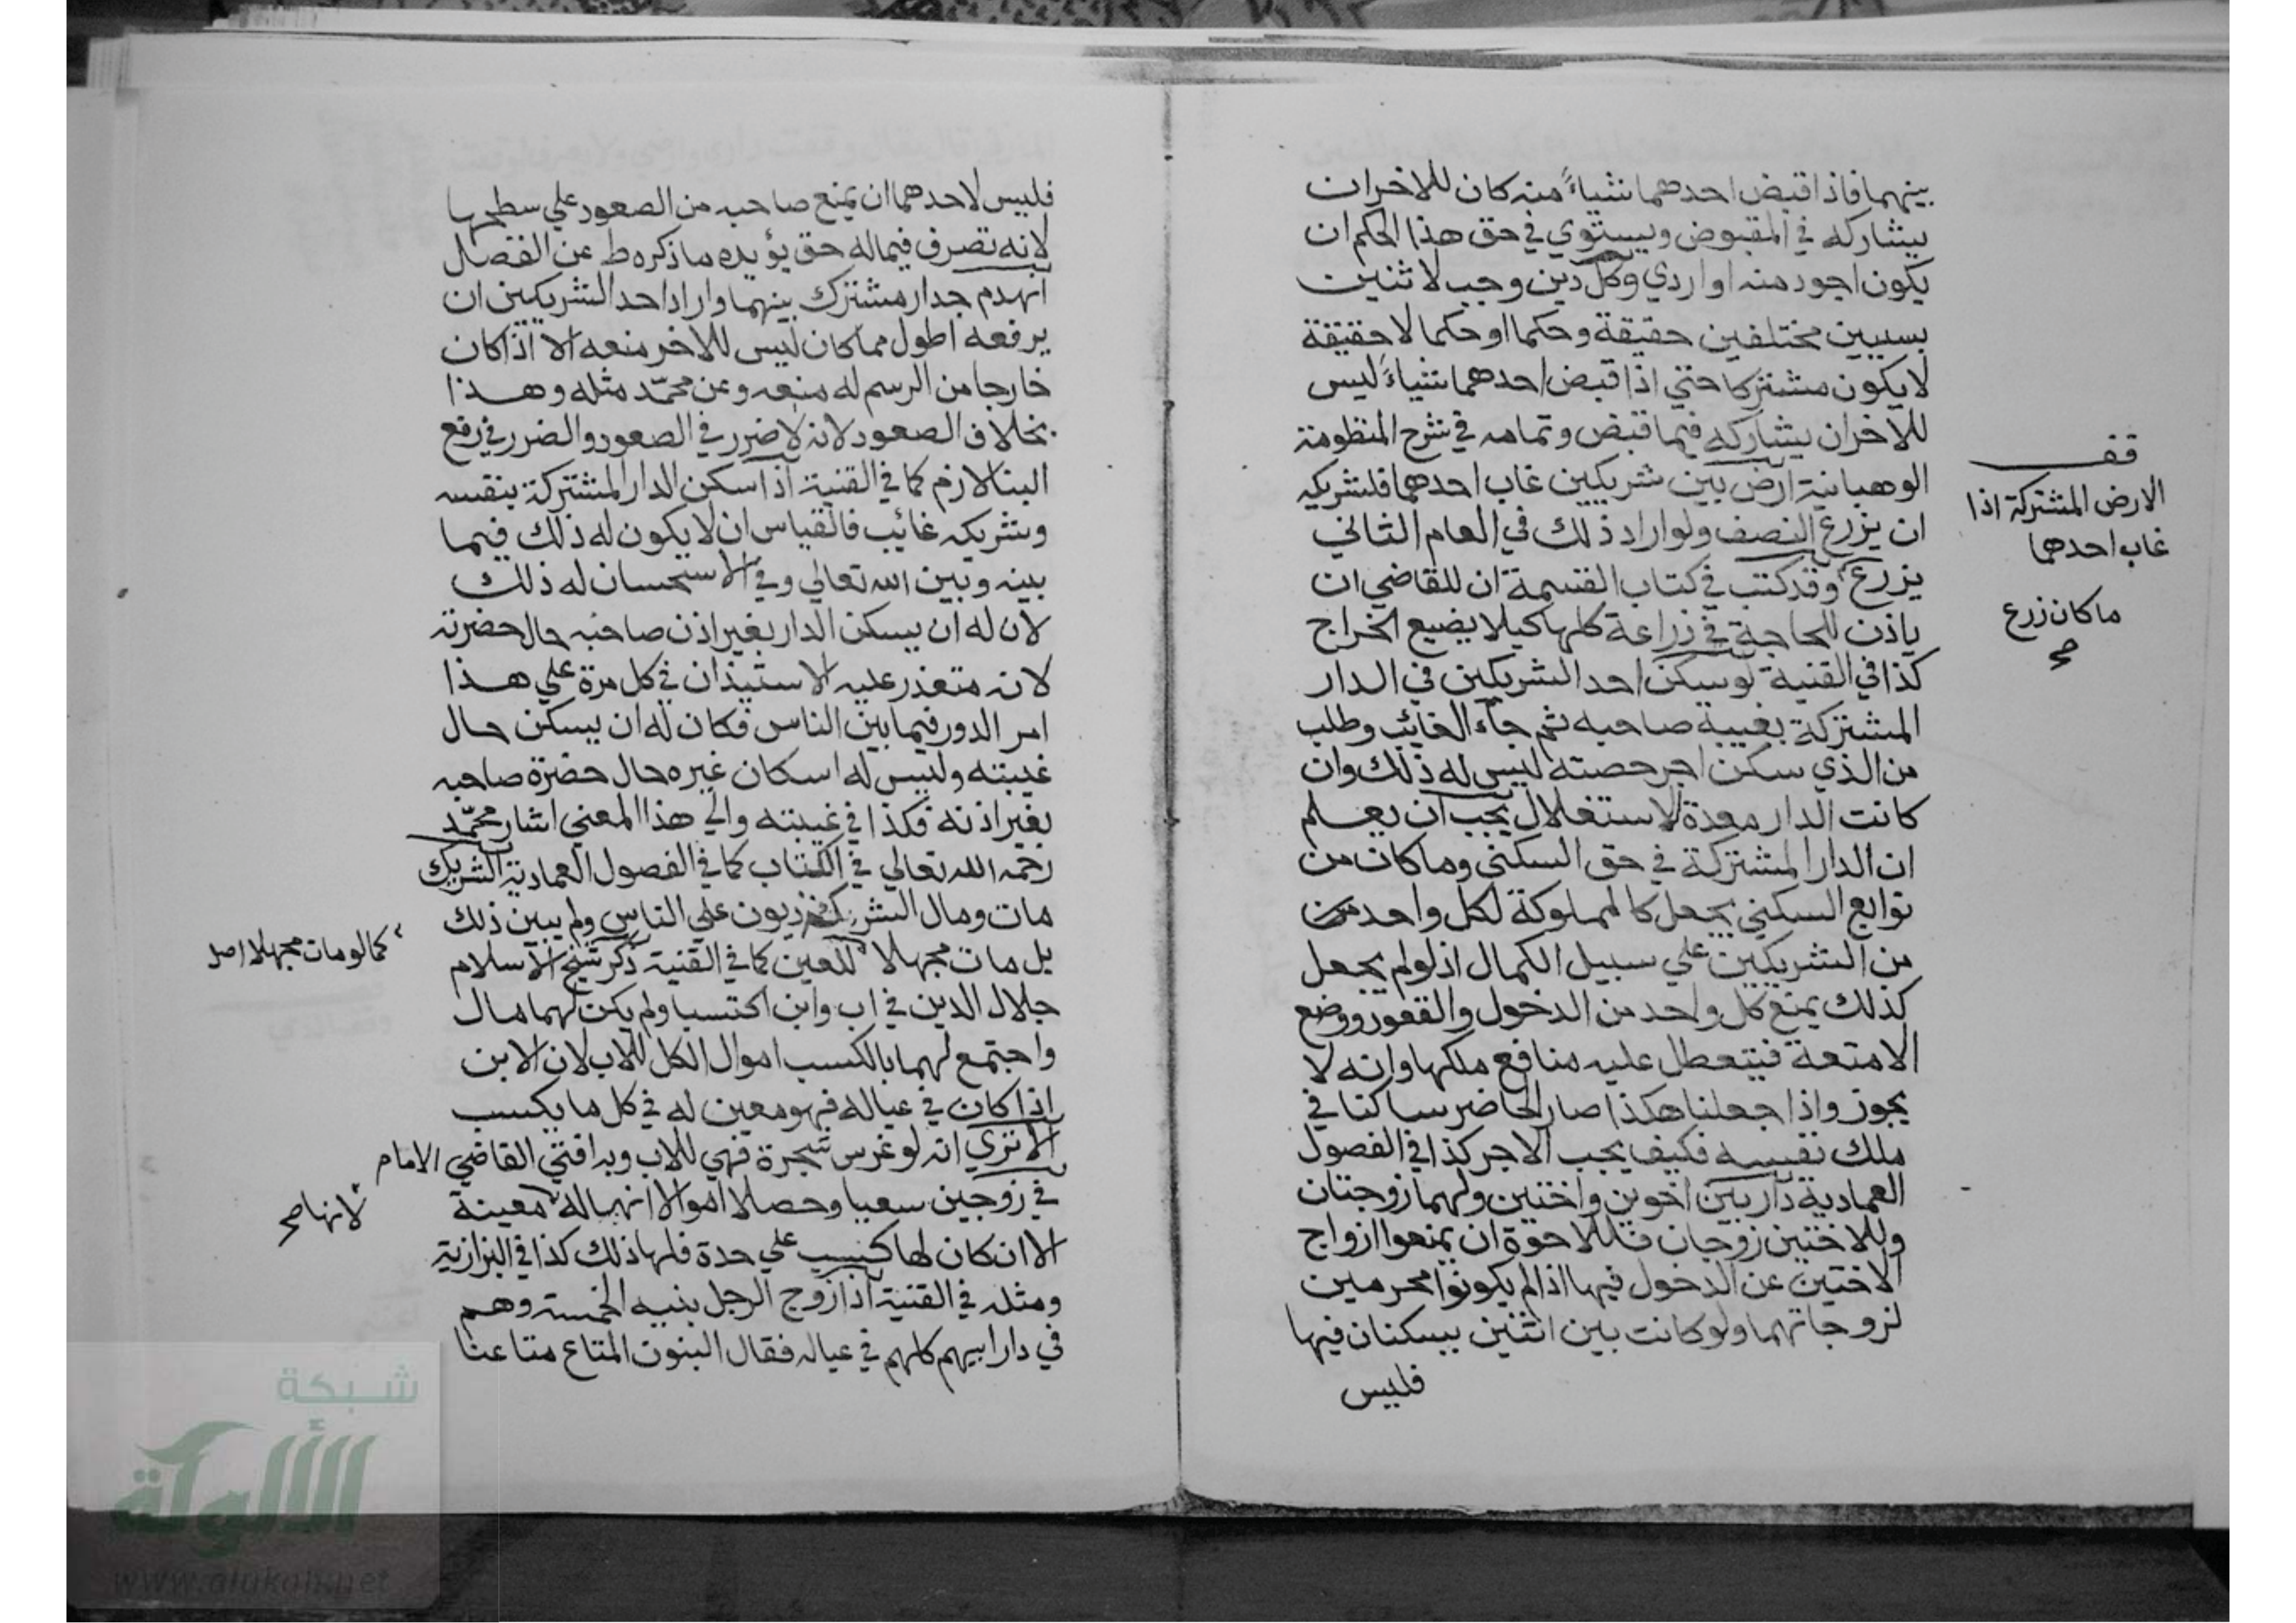 بينهما فاذا قبض احدهما شياءً منه كان للاخر ان
يشاركه في المقبوض ويستوي في حق هذا الحكم ان
يكون اجود منه او اردي وكل دين وجب لاثنين
بسببين مختلفين حقيقة وحكما او حكما لا حقيقة
لا يكون مشتركا حتي اذا قبض احدهما شياءً ليس
للاخر ان يشاركه فيما قبض وتمامه في شرح المنظومة
الوهبانية ارض بين شريكين غاب احدهما فلشريكه
ان يزرع النصف ولو اراد ذلك في العام الثاني
يزرع وقد كتب في كتاب القسمة ان للقاضي ان
ياذن للحاجة في زراعة كلها كيلا يضيع الخراج
كذا في القنية لو سكن احد الشريكين في الدار
المشتركة بغيبة صاحبه ثم جآء الغائب وطلب
من الذي سكن اجر حصته ليس له ذلك وان
كانت الدار معدة للاستغلال يجب ان يعلم
ان الدار المشتركة في حق السكني وما كان من
توابع السكني يجعل كالمملوكة لكل واحد من
من الشريكين علي سبيل الكمال اذ لو لم يجعل
كذلك يمنع كل واحد من الدخول والقعود ووضع
الامتعة فيتعطل عليه منافع ملكها وانه لا
يجوز واذا جعلنا هكذا صار الحاضر ساكنا في
ملك نفسه فكيف يجب الاجر كذا في الفصول
العمادية دار بين اخوين واختين ولهما زوجتان
وللاختين زوجان فللاخوة ان يمنعوا ازواج
الاختين عن الدخول فيها اذا لم يكونوا محرمين
لزوجاتهما ولو كانت بين اثنين يسكنان فيها
فليس
قف
الارض المشتركة اذا
غاب احدهما
ما كان زرع
صح
فليس لاحدهما ان يمنع صاحبه من الصعود علي سطحها
لانه تصرف فيما له حق يؤيده ما ذكره ط عن الفصال
انهدم جدار مشترك بينهما واراد احد الشريكين ان
يرفعه اطول مما كان ليس للاخر منعه الا اذا كان
خارجا من الرسم له منعه وعن محمّد مثله وهذا
بخلاف الصعود لانه لا ضرر في الصعود والضرر في رفع
البنا لازم كما في القنية اذا سكن الدار المشتركة بنفسه
وشريكه غائب فالقياس ان لا يكون له ذلك فيما
بينه وبين الله تعالي وفي الاستحسان له ذلك
لان له ان يسكن الدار بغير اذن صاحبه حال حضرته
لانه متعذر عليه الاستيذان في كل مرة علي هذا
امر الدور فيما بين الناس فكان له ان يسكن حال
غيبته وليس له اسكان غيره حال حضرة صاحبه
بغير اذنه فكذا في غيبته والي هذا المعني اشار محمّد
رحمه الله تعالي في الكتاب كما في الفصول العمادية الشريك
مات ومال الشركة ديون علي الناس ولم يبين ذلك
بل مات مجهلا للعين كما في القنية ذكر شيخ الاسلام
جلال الدين في اب وابن اكتسبا ولم يكن لهما مال
واجتمع لهما بالكسب اموال الكل للاب لان الابن
اذا كان في عياله فهو معين له في كل ما يكسب
الا تري انه لو غرس شجرة فهي للاب وبه افتي القاضي الامام
في زوجين سعيا وحصلا اموالا انها له معينة
الا ان كان لها كسب علي حدة فلها ذلك كذا في البزازية
ومثله في القنية اذا زوج الرجل بنيه الخمسة وهم
في دار ابيهم كلهم في عياله فقال البنون المتاع متاعنا
كما لو مات مجهلا اصل
لانها صح
شبكة
الألوكة
www.alukah.net